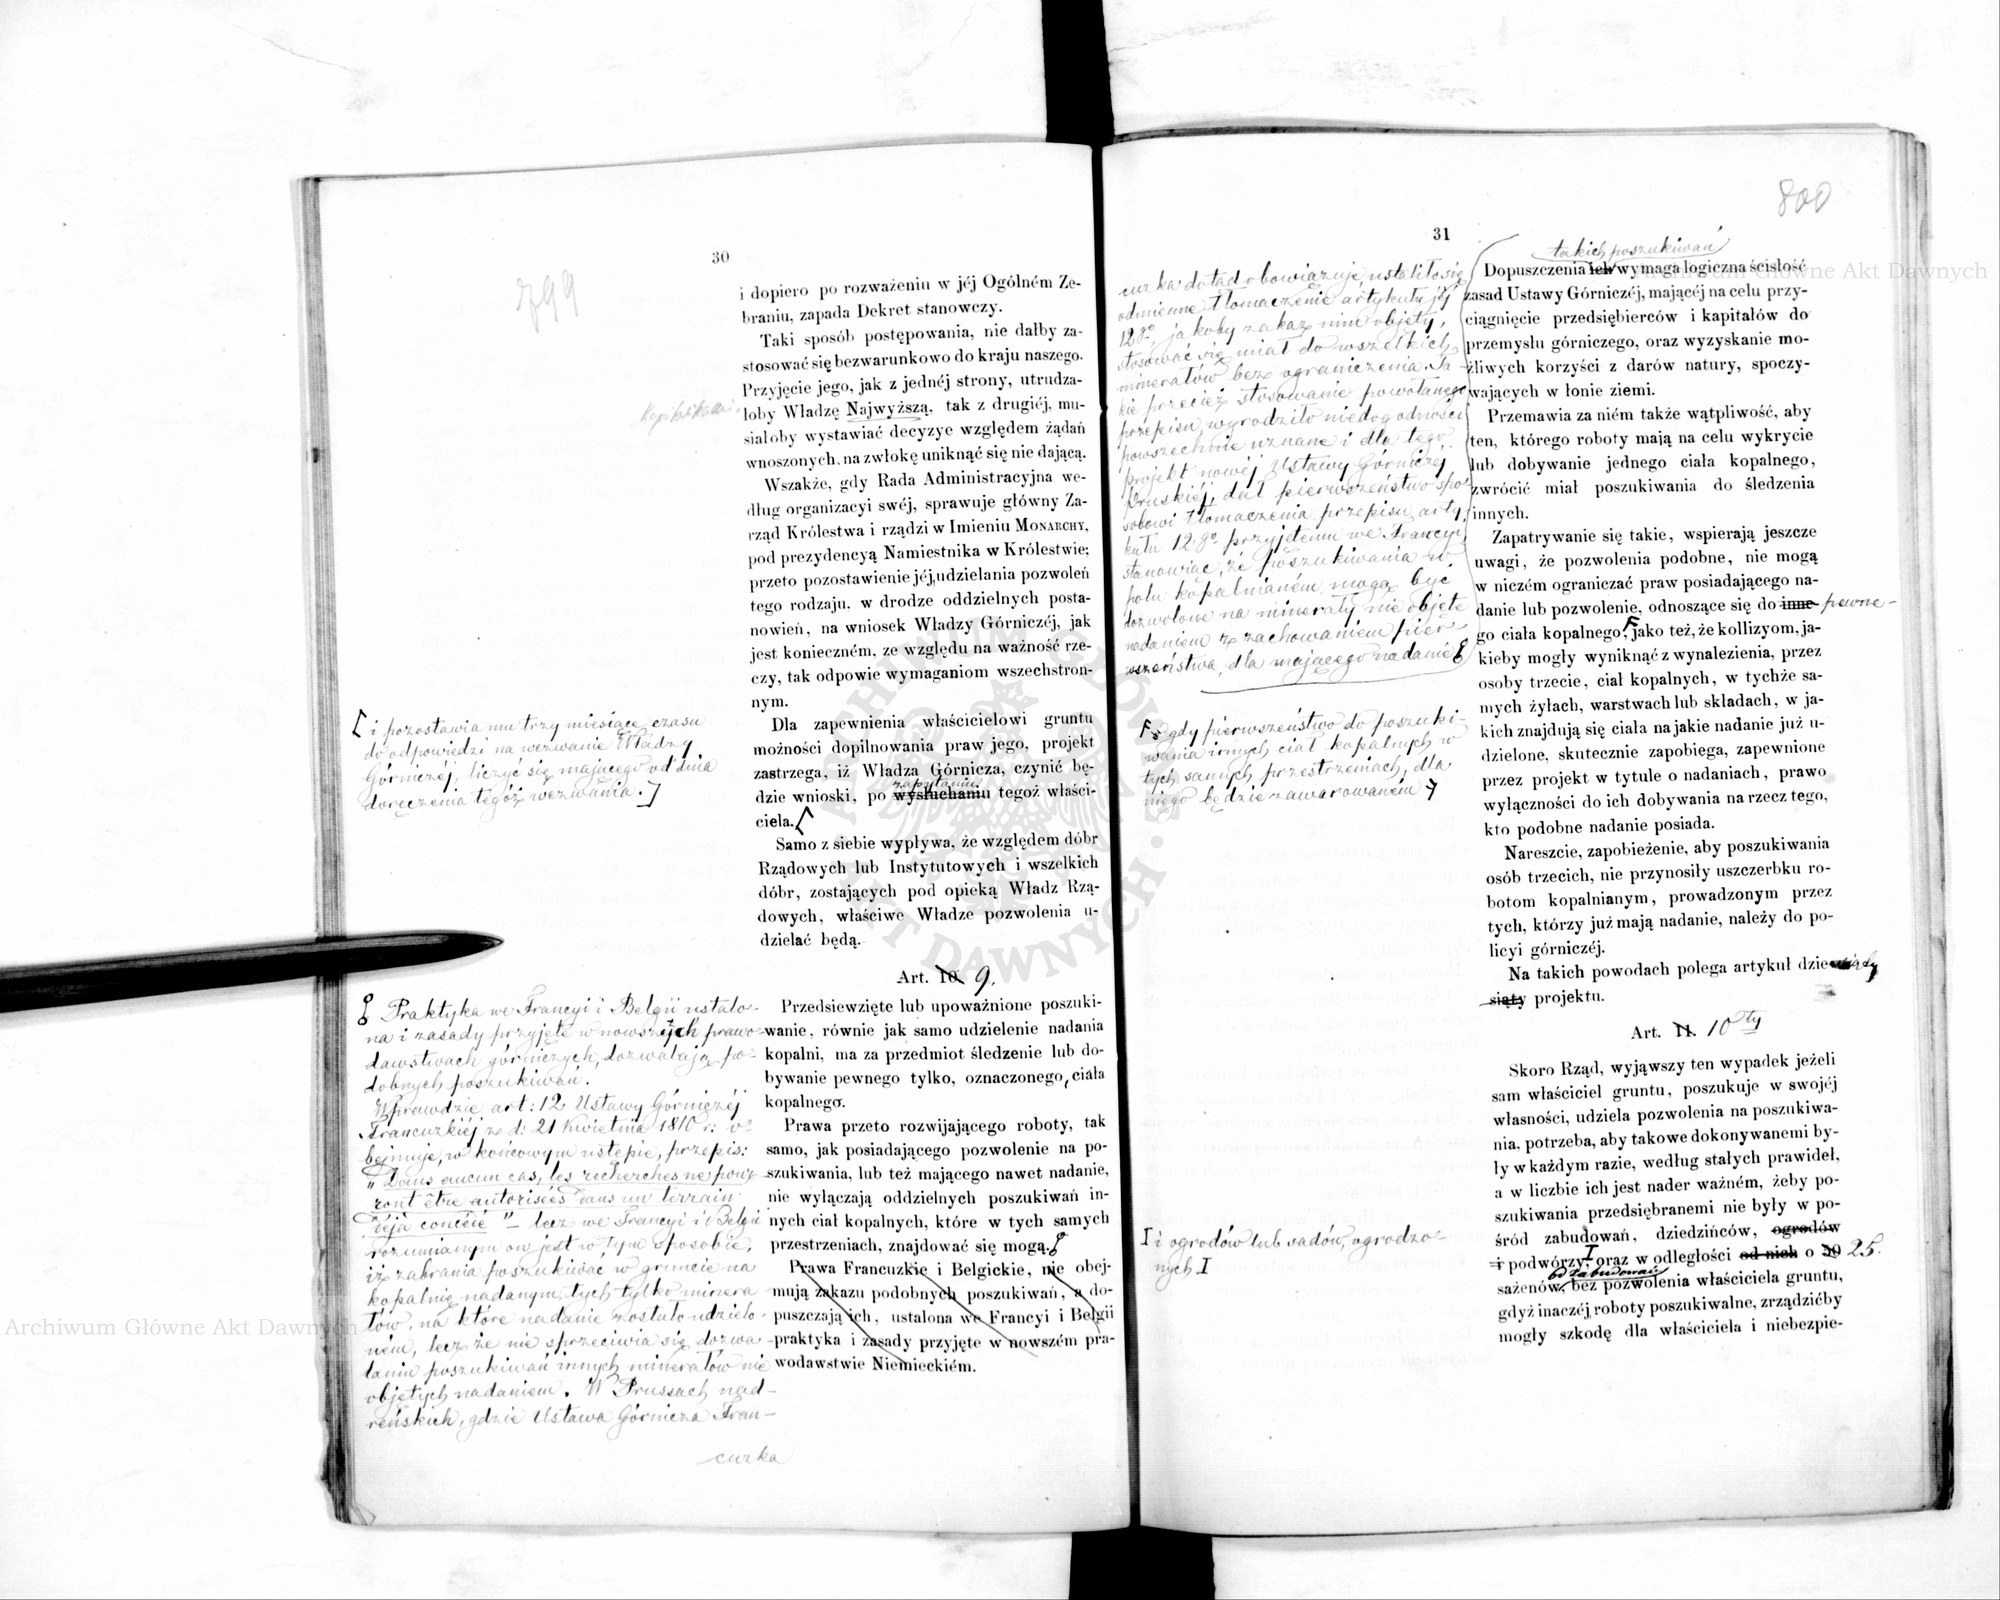 799
30
i dopiero po rozważeniu w jéj Ogólném Ze-
braniu, zapada Dekret stanowczy.
Taki sposób postępowania, nie dałby za-
stosować się bezwarunkowo do kraju naszego.
Przyjęcie jego, jak z jednéj strony, utrudza-
łoby Władzę Najwyższą, tak z drugiéj, mu-
siałoby wystawiać decyzye względem żądań
wnoszonych, na zwłokę uniknąć się nie dającą.
Wszakże, gdy Rada Administracyjna we-
dług organizacyi swéj, sprawuje główny Za-
rząd Królestwa i rządzi w Imieniu MONARCHY,
pod prezydencyą Namiestnika w Królestwie;
przeto pozostawienie jéj, udzielania pozwoleń
tego rodzaju, w drodze oddzielnych posta-
nowień, na wniosek Władzy Górniczéj, jak
jest konieczném, ze względu na ważność rze-
czy, tak odpowie wymaganiom wszechstron-
nym.
Dla zapewnienia właścicielowi gruntu
możności dopilnowania praw jego, projekt
zastrzega, iż Władza Górnicza, czynić bę-
zapytaniu
dzie wnioski, po wysłuchaniu tegoż właści-
ciela. [
Samo z siebie wypływa, że względem dóbr
Rządowych lub Instytutowych i wszelkich
dóbr, zostających pod opieką Władz Rzą-
dowych, właściwe Władze pozwolenia u-
dzielać będą.
Art. 10. 9.
Przedsiewzięte lub upoważnione poszuki-
wanie, równie jak samo udzielenie nadania
kopalni, ma za przedmiot śledzenie lub do-
bywanie pewnego tylko, oznaczonego, ciała
kopalnego.
Prawa przeto rozwijającego roboty, tak
samo, jak posiadającego pozwolenie na po-
szukiwania, lub też mającego nawet nadanie,
nie wyłączają oddzielnych poszukiwań in-
nych ciał kopalnych, które w tych samych
przestrzeniach, znajdować się mogą.
Prawa Francuzkie i Belgickie, nie obej-
mują zakazu podobnych poszukiwań, a do-
puszczają ich, ustalona we Francyi i Belgii
praktyka i zasady przyjęte w nowszém pra-
wodawstwie Niemieckiém.
[ i pozostawia mu trzy miesiące czasu
do odpowiedzi na wezwanie Władzy
Górniczéj, liczyć się mającego od dnia
doręczenia tegóż wezwania. ]
Praktyka we Francyi i Belgii ustalo-
na i zasady przyjęte w nowszych prawo-
dawstwach górniczych, dozwalają po-
dobnych poszukiwań.
Wprawdzie art: 12 Ustawy Górniczéj
Francuzkiéj z d: 21 Kwietnia 1810 r: o-
bejmuje, w końcowym ustępie, przepis:
"Dans aucun cas, les recherches ne pour-
ront être autorisées dans un terrain
déja concédé" — lecz we Francyi i Belgii
rozumianym on jest w tym sposobie,
iż zabrania poszukiwać w gruncie na
kopalnię nadanym, tych tylko minera-
łów, na które nadanie zostało udzielo-
ném, lecz że nie sprzeciwia się dozwa-
laniu poszukiwań innych minerałów nie
objętych nadaniem. W Prussach nad-
reńskich, gdzie Ustawa Górnicza Fran-
cuzka
800
31
cuzka dotąd obowiązuje, ustaliło się
odmienne tłomaczenie artykułu jéj
12go, jakoby zakaz nim objęty,
stosować się miał do wszelkich
minerałów bez ograniczenia. Ta-
kie przecież stosowanie powołanego
przepisu, wyrodziło niedogodności
powszechnie uznane i dla tego
projekt nowéj Ustawy Górniczéj
Pruskiéj, dał pierwszeństwo spo-
sobowi tłomaczenia przepisu arty-
kułu 12go przyjętemu we Francyi,
stanowiąc, że poszukiwania w
polu kopalnianém, mogą być
dozwolone na minerały nie objęte
nadaniem z zachowaniem pier-
wszeństwa, dla mającego nadanie
gdy pierwszeństwo do poszuki-
wania innych ciał kopalnych w
tych samych przestrzeniach, dla
niego będzie zawarowaném
I i ogrodów lub sadów, ogrodzo-
nych I
takich poszukiwań
Dopuszczenia ich wymaga logiczna ścisłość
zasad Ustawy Górniczéj, mającéj na celu przy-
ciągnięcie przedsiębierców i kapitałów do
przemysłu górniczego, oraz wyzyskanie mo-
żliwych korzyści z darów natury, spoczy-
wających w łonie ziemi.
Przemawia za niém także wątpliwość, aby
ten, którego roboty mają na celu wykrycie
lub dobywanie jednego ciała kopalnego,
zwrócić miał poszukiwania do śledzenia
innych.
Zapatrywanie się takie, wspierają jeszcze
uwagi, że pozwolenia podobne, nie mogą
w niczém ograniczać praw posiadającego na-
danie lub pozwolenie, odnoszące się do inne- pewne-
go ciała kopalnego, jako też, że kollizyom, ja-
kieby mogły wyniknąć z wynalezienia, przez
osoby trzecie, ciał kopalnych, w tychże sa-
mych żyłach, warstwach lub składach, w ja-
kich znajdują się ciała na jakie nadanie już u-
dzielone, skutecznie zapobiega, zapewnione
przez projekt w tytule o nadaniach, prawo
wyłączności do ich dobywania na rzecz tego,
kto podobne nadanie posiada.
Nareszcie, zapobieżenie, aby poszukiwania
osób trzecich, nie przynosiły uszczerbku ro-
botom kopalnianym, prowadzonym przez
tych, którzy już mają nadanie, należy do po-
licyi górniczéj.
Na takich powodach polega artykuł dziewiąty
siąty projektu.
Art. 11. 10ty
Skoro Rząd, wyjąwszy ten wypadek jeżeli
sam właściciel gruntu, poszukuje w swojéj
własności, udziela pozwolenia na poszukiwa-
nia, potrzeba, aby takowe dokonywanemi by-
ły w każdym razie, według stałych prawideł,
a w liczbie ich jest nader ważném, żeby po-
szukiwania przedsiębranemi nie były w po-
śród zabudowań, dziedzińców, ogrodów
i podwórzy, I oraz w odległości od nich o 50 25.
od zabudowań
sażenów, bez pozwolenia właściciela gruntu,
gdyż inaczéj roboty poszukiwalne, zrządzićby
mogły szkodę dla właściciela i niebezpie-
Archiwum Główne Akt Dawnych
Archiwum Główne Akt Dawnych